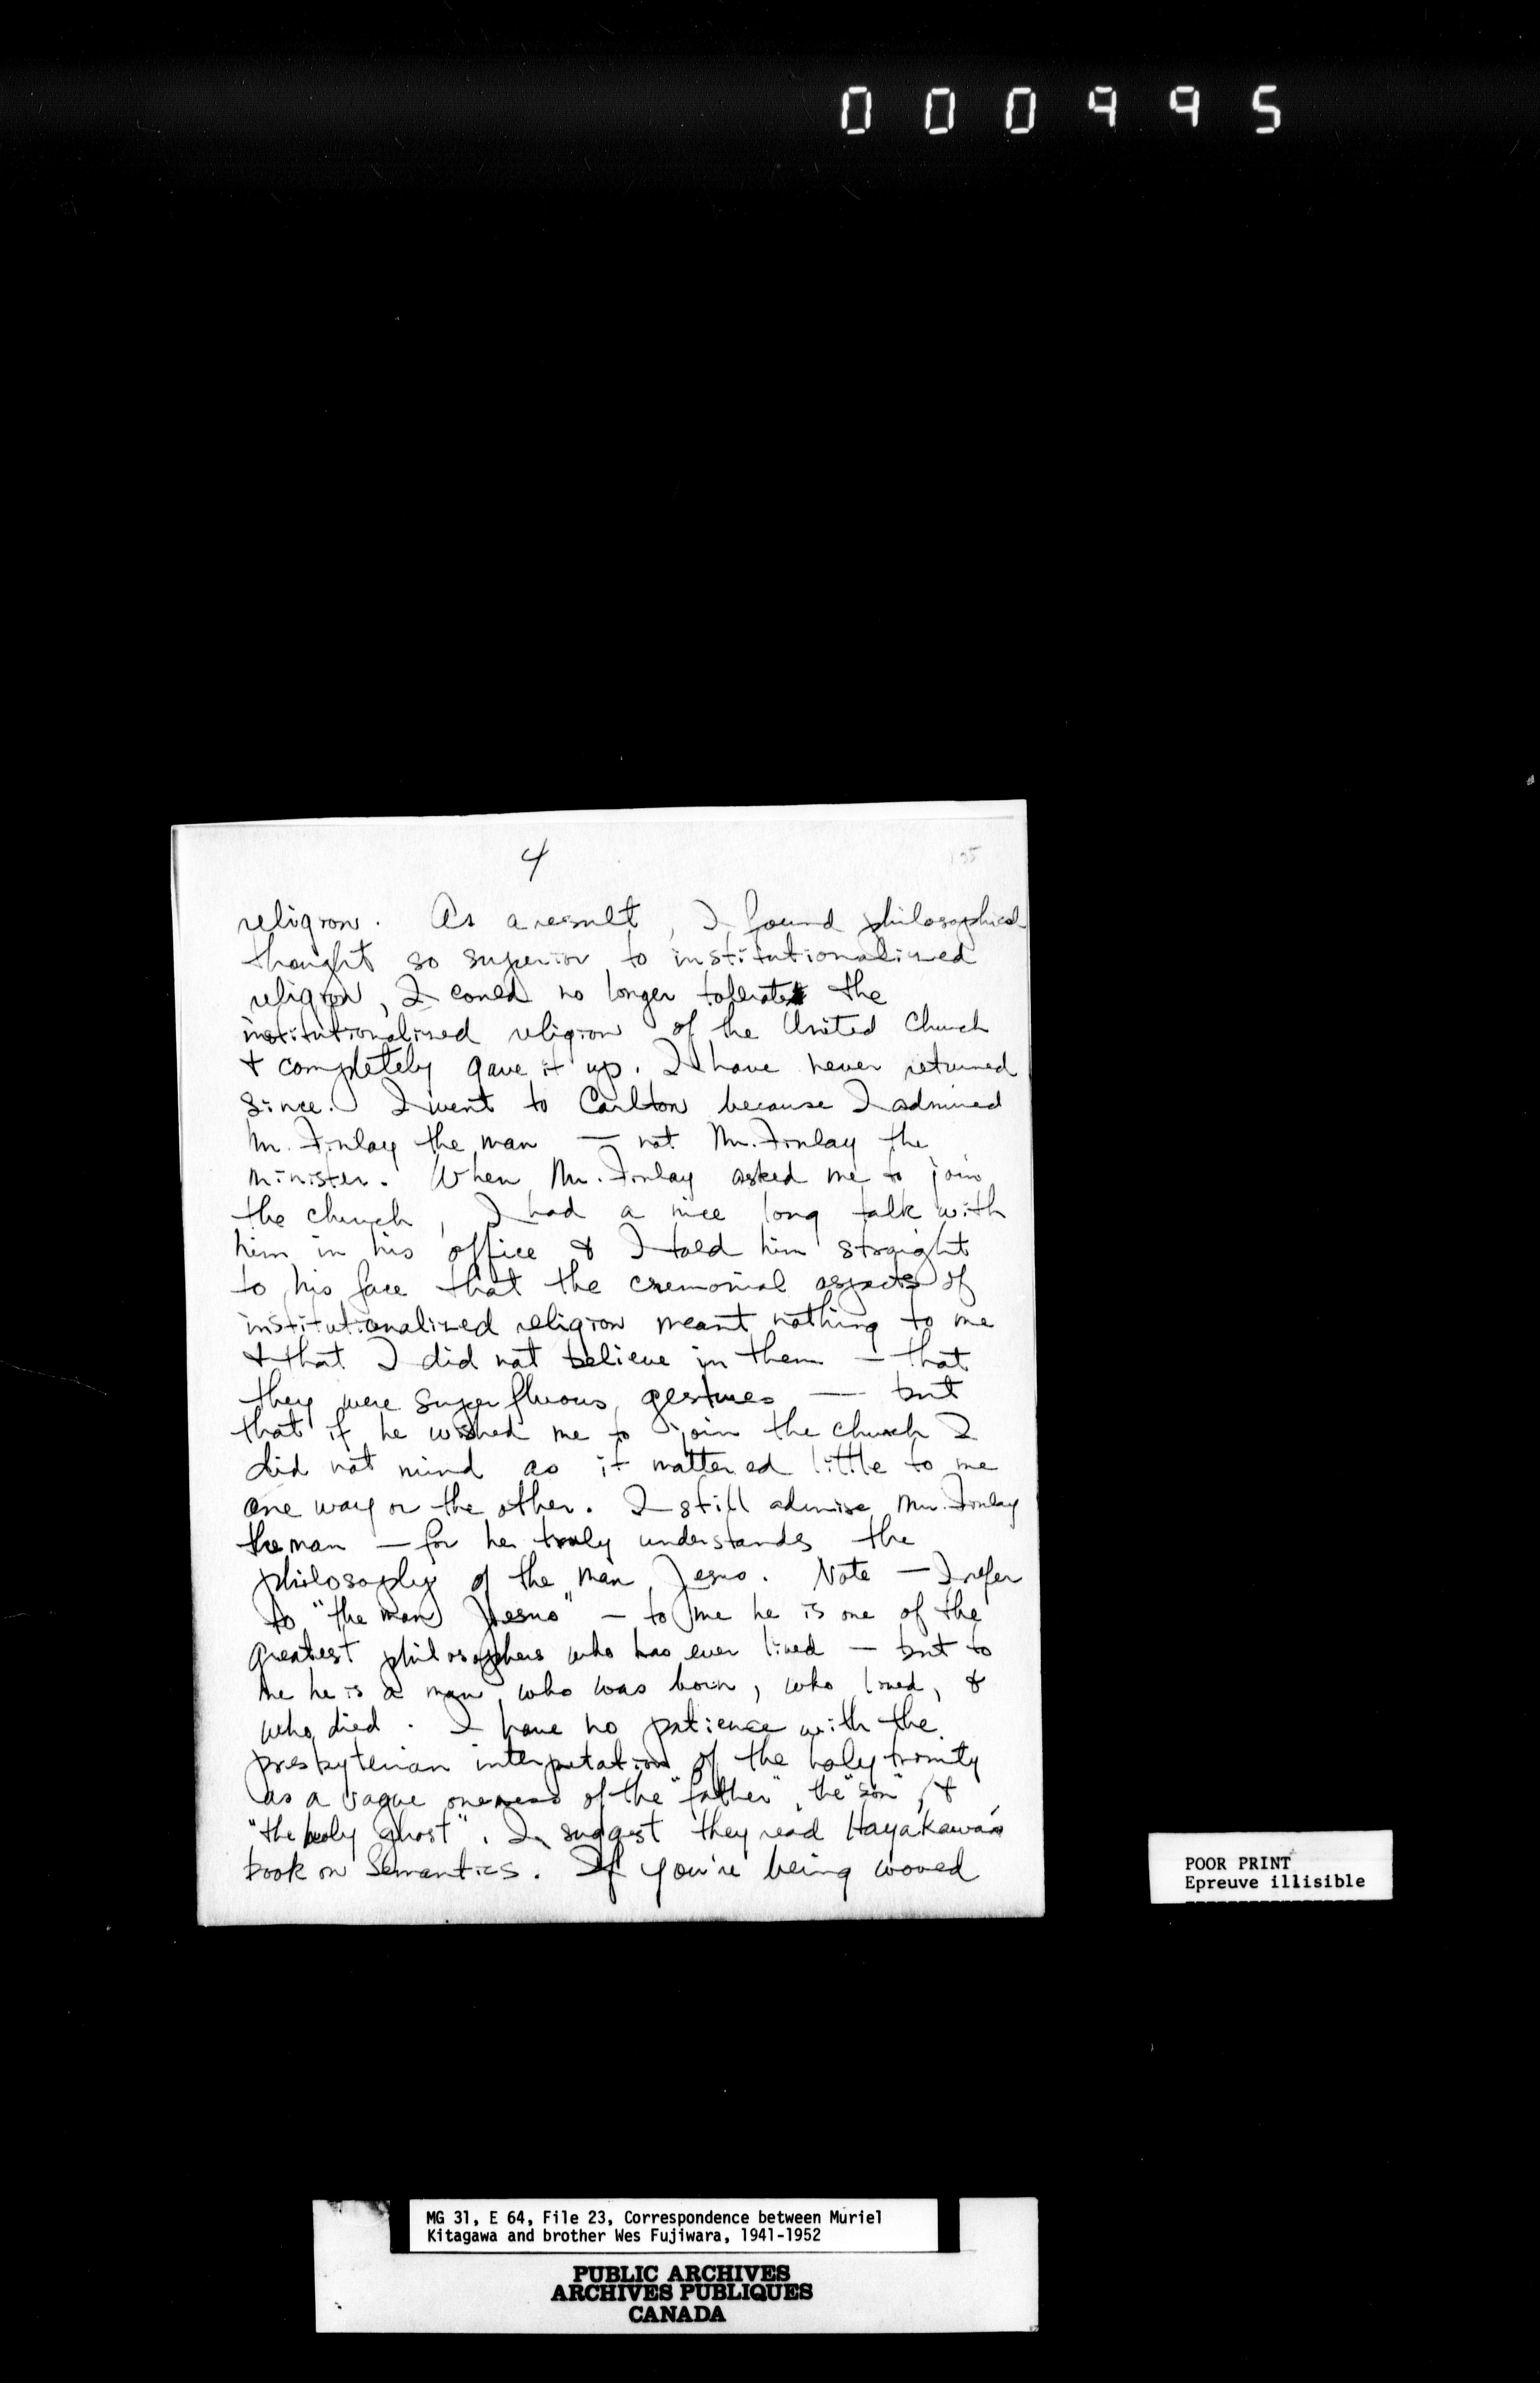 000995
4
religion. As a result, I found philosophical
thought so superior to institutionalized
religion, I could no longer tolerate the
institutionalized religion of the United Church
& completely gave it up. I have never returned
since. I went to Carlton because I admired
Mr. Finlay the man — not Mr. Finlay the
minister. When Mr. Finlay asked me to join
the church, I had a nice long talk with
him in his office & I told him straight
to his face that the cremonial aspects of
institutionalized religion meant nothing to me
& that I did not believe in them — that
they were superfluous gestures — but
that if he wished me to join the church I
did not mind as it mattered little to me
one way or the other. I still admire Mr. Finlay
the man — for he truly understands the
philosophy of the man Jesus. Note — I refer
to "the man Jesus" — to me he is one of the
greatest philosophers who has ever lived — but to
me he is a man who was born, who lived, &
who died. I have no patience with the
presbyterian interpretation of the holy trinity
as a vague oneness of the "father", the "son", &
"the holy ghost". I suggest they read Hayakawa's
book on Semantics. If you're being wooed
POOR PRINT
Epreuve illisible
MG 31, E 64, File 23, Correspondence between Muriel
Kitagawa and brother Wes Fujiwara, 1941-1952
PUBLIC ARCHIVES
ARCHIVES PUBLIQUES
CANADA